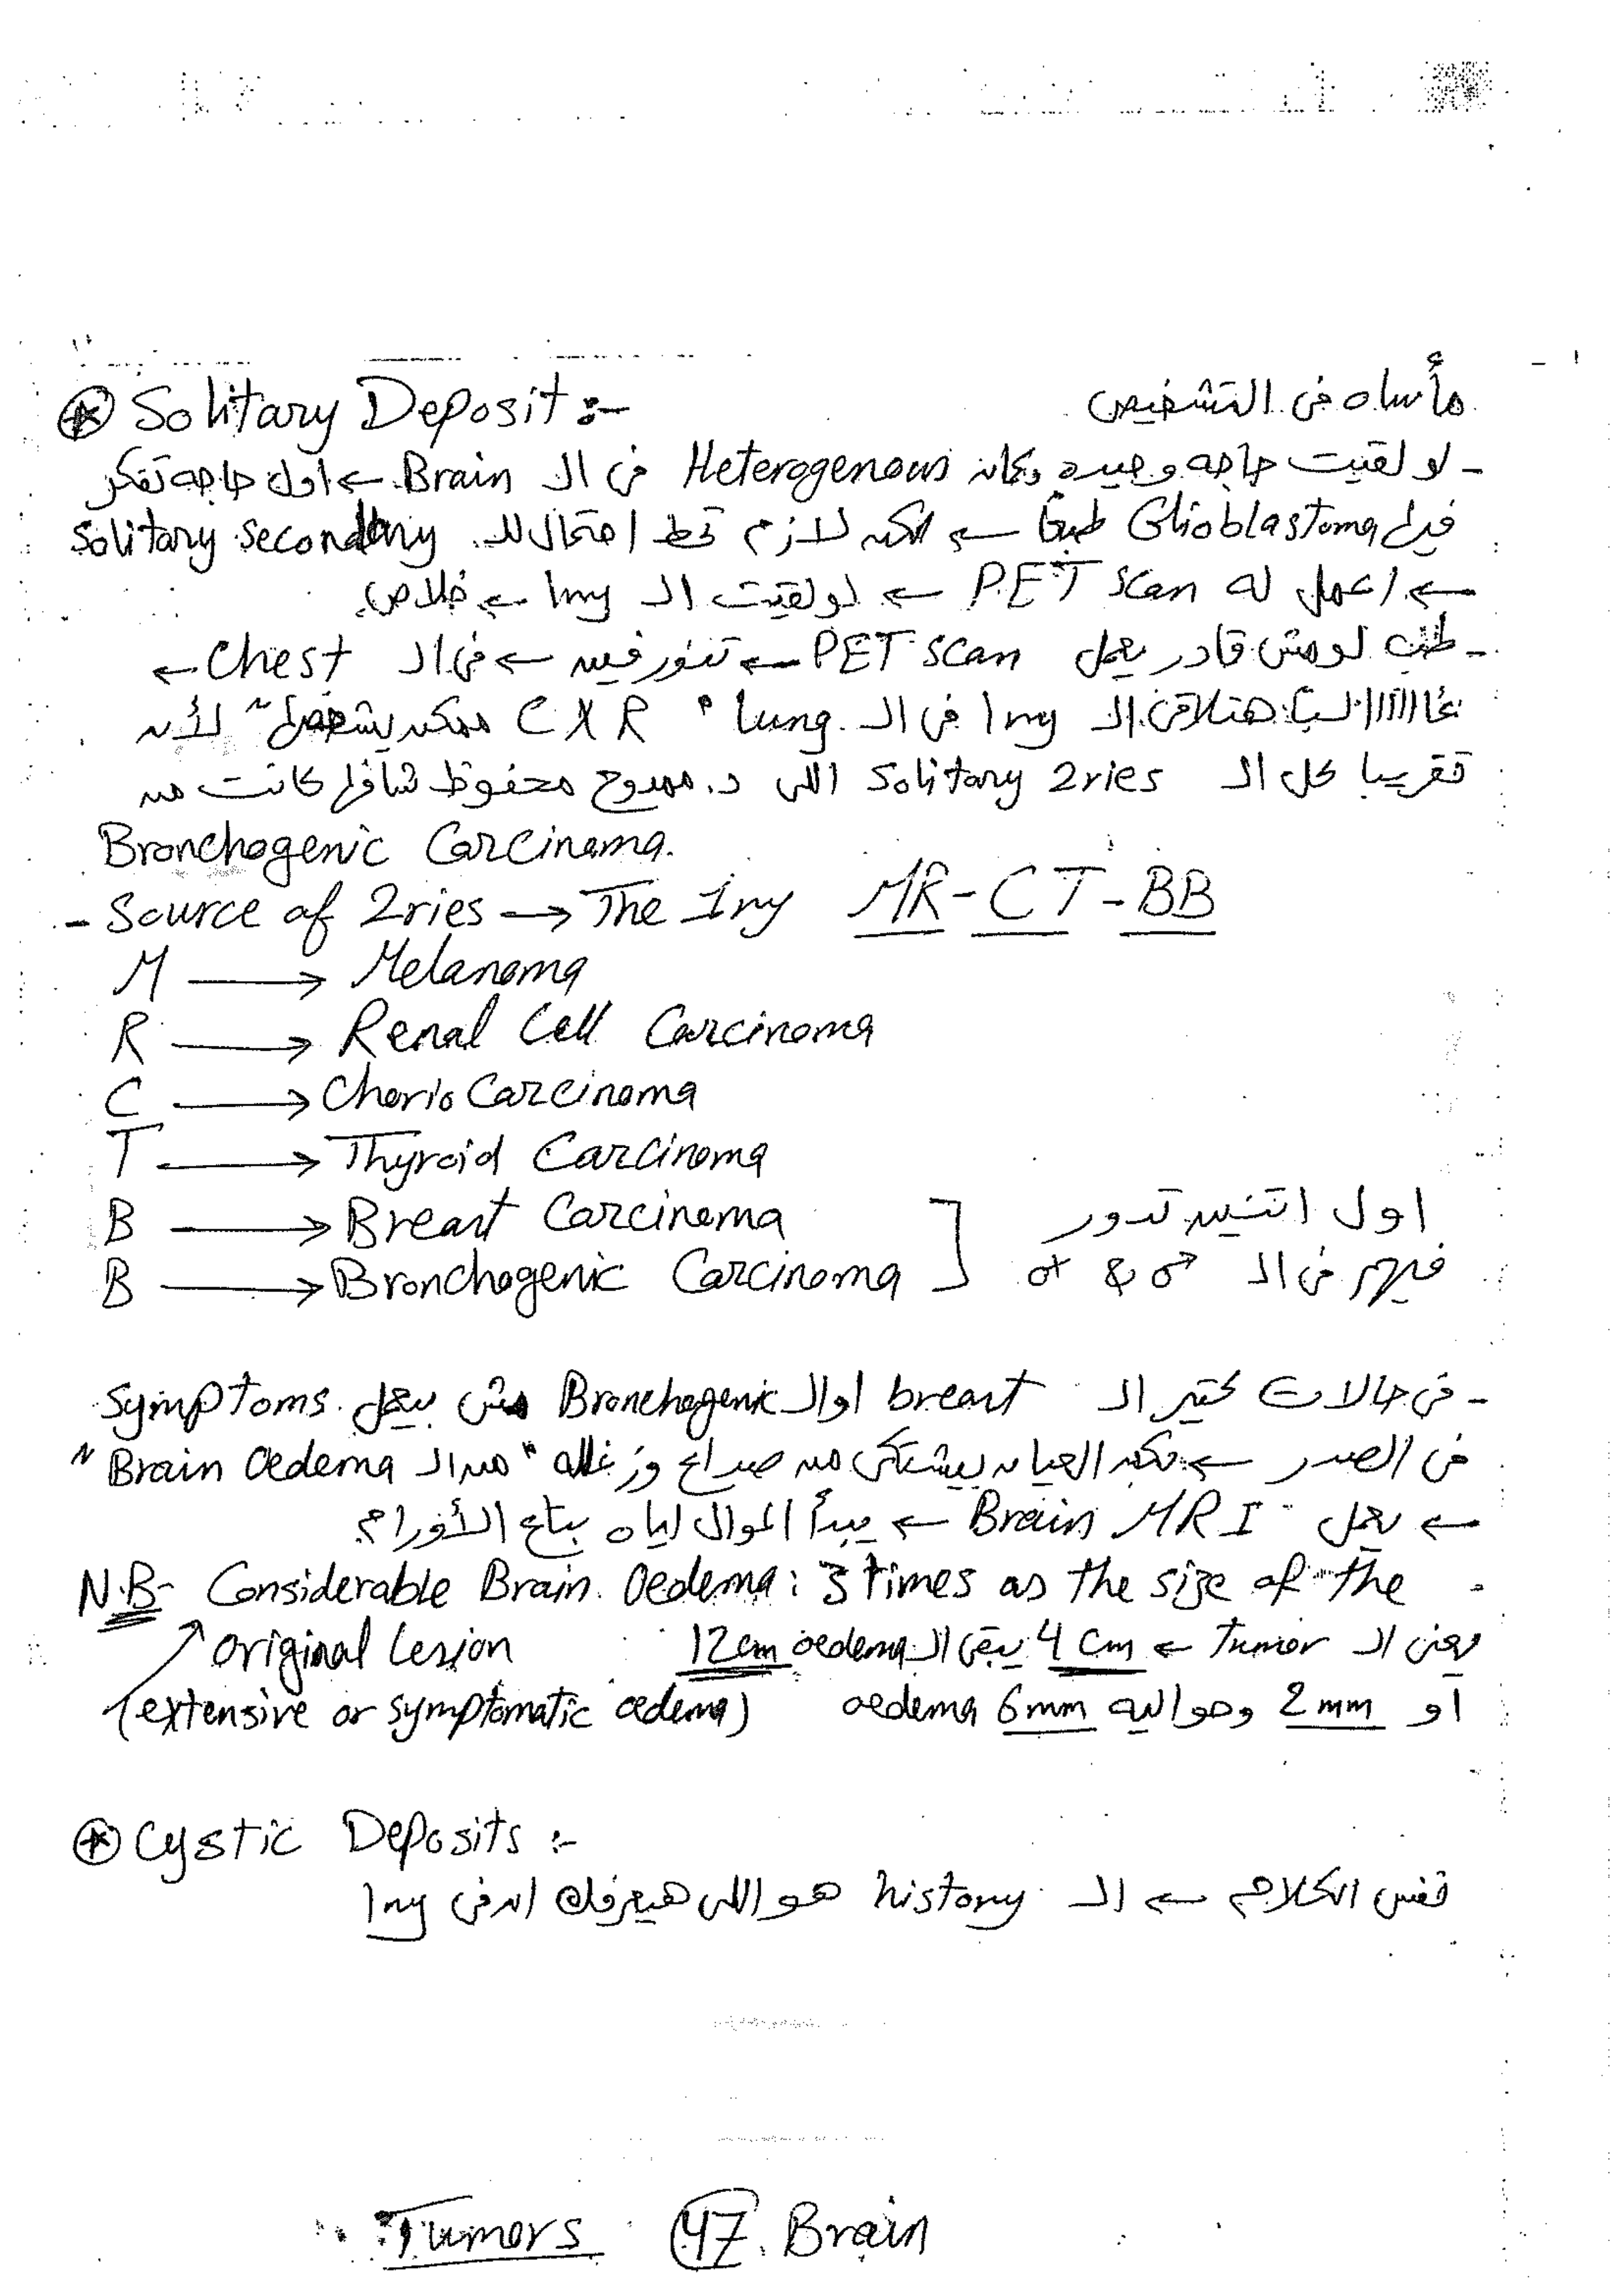 ⊛ Solitary Deposit :- مأساه فى التشخيص
- لو لقيت حاجه وحيده وكمان Heterogenous فى الـ Brain ← اول حاجه تفكر
فيها Glioblastoma طبعًا ← لكن لازم تحط احتمال للـ Solitary Secondary
← اعمل له PET Scan ← لو لقيت الـ 1ry ← خلاص.
- طب لو مش قادر يعمل PET Scan ← تدور فين ← فى الـ Chest ←
غااااالبًا هتلاقى الـ 1ry فى الـ lung. " CXR ممكن يشخصها " لأن
تقريبا كل الـ Solitary 2ries اللى د. ممدوح محفوظ شافها كانت من
Bronchogenic Carcinoma.
- Source of 2ries → The 1ry MR-CT-BB
M → Melanoma
R → Renal Cell Carcinoma
C → Chorio Carcinoma
T → Thyroid Carcinoma
B → Breast Carcinoma ] اول اتنين تدور
B → Bronchogenic Carcinoma ] فيهم فى الـ ♂ & ♀
- فى حالات كتير الـ breast اوالـ Bronchogenic مش بيعمل Symptoms.
فى الصدر ← لكن العيان بيشتكى من صداع وزغلله " من الـ Brain Oedema "
← يعمل Brain MRI ← يبدأ الموال اياه بتاع الأورام
N.B- Considerable Brain Oedema: 3 times as the size of the
original Lesion يعنى الـ Tumor ← 4 cm يبقى الـ oedema 12 cm
(extensive or symptomatic oedema) او 2 mm وحواليه 6 mm oedema
⊛ Cystic Deposits :-
نفس الكلام ← الـ history هو اللى هيعرفك ان فى 1ry
Tumors 47 Brain